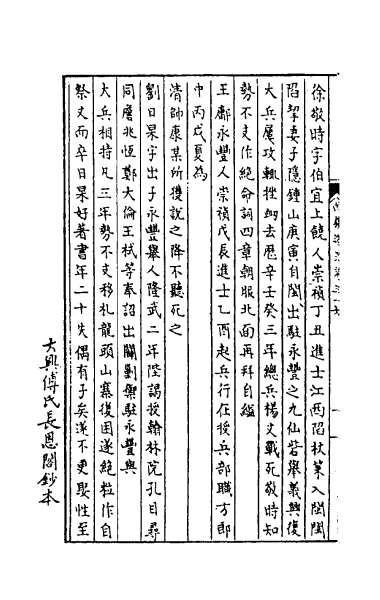 徐敬時字伯宜上饒人崇禎丁丑進士江西陷杖策入閩閩
陷挈妻子隱鍾山庚寅自閩出駐永豐之九仙砦舉義興復
大兵屢攻輒挫衂去歷辛壬癸三年總兵楊文戰死敬時知
勢不支作絕命詞四章朝服北面再拜自縊
王鄘永豐人崇禎戊辰進士乙酉起兵行在授兵部職方郎
中丙戌夏為
清帥康某所獲說之降不聽死之
劉日杲字出子永豐舉人隆武二年陛謁授翰林院孔目尋
同詹兆恒鄭大倫王栻等奉詔出關劄禦駐永豐與
大兵相持凡三年勢不支移札龍頭山寨復困遂絕粒作自
祭文而卒日杲好著書年二十失偶有子矣遂不更娶性至
大興傅氏長恩閣鈔本